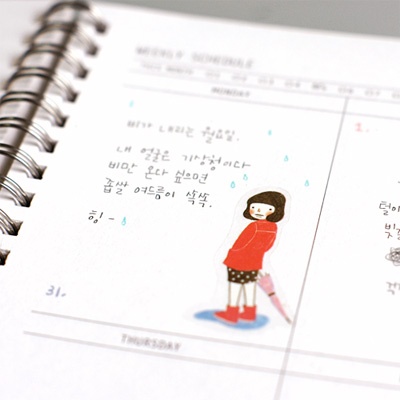 WEEKLY SCHEDULE
MONDAY
비가 내리는 월요일.
내 얼굴은 기상청이다
비만 온다 싶으면
좁쌀 여드름이 쏙쏙.
힝-
31.
THURSDAY
1.
털이
빗